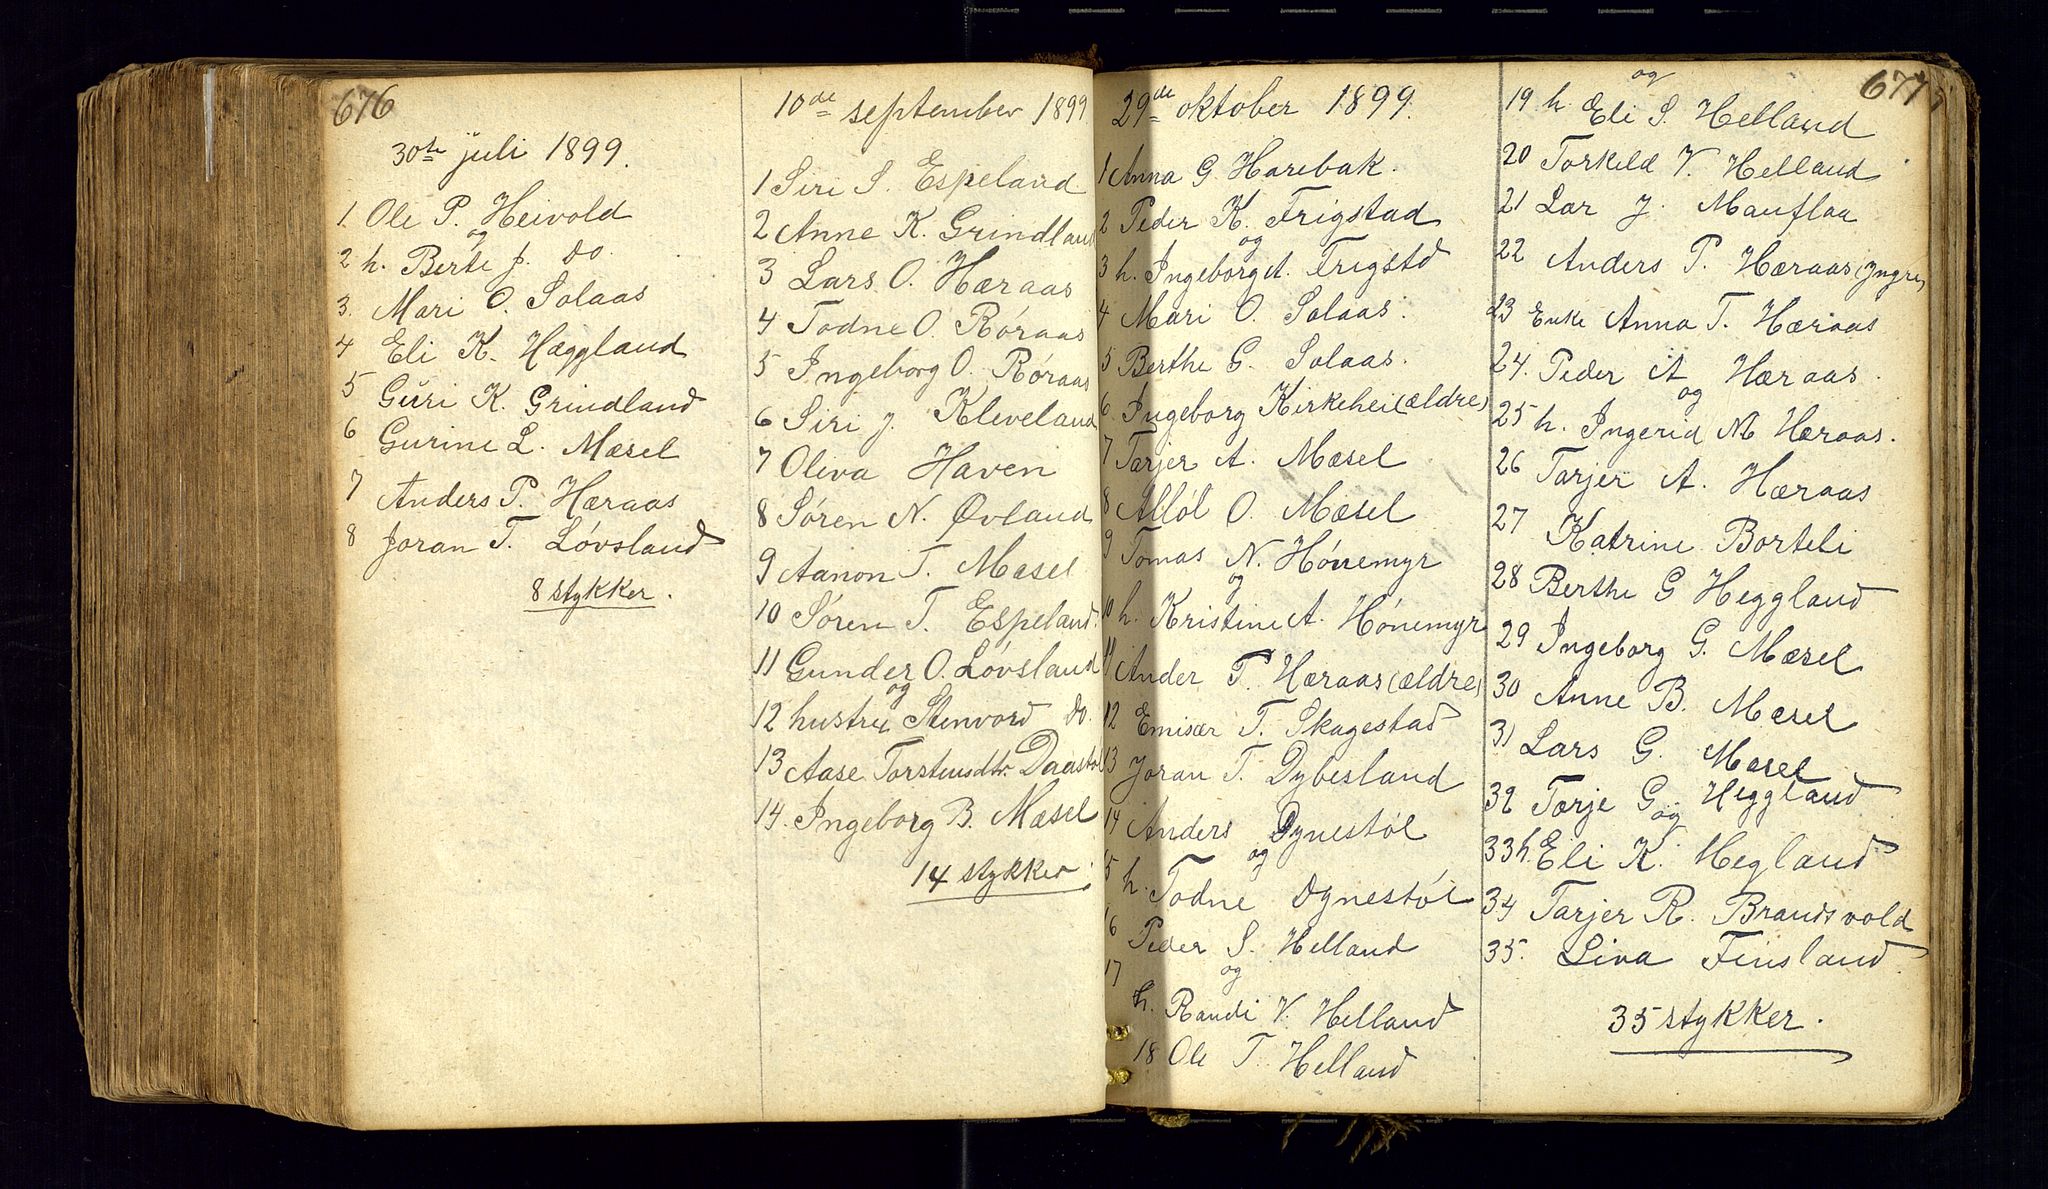 676
30te juli 1899.
1 Ole P. Heivold
og
2 h. Berte J. do.
3. Mari O. Solaas
4 Eli K. Hæggland
5 Guri K. Grindland
6 Gurine L. Mæsel
7 Anders P. Hæraas
8 Joran T. Løvsland
8 stykker.
10de september 1899
1 Siri S. Espeland
2 Anne K. Grindland
3 Lars O. Hæraas
4 Todne O. Røraas
5 Ingeborg O. Røraas
6 Siri J. Kleveland
7 Oliva Haven
8 Søren N. Øvland
9 Aanon T. Mæsel
10 Søren T. Espeland.
11 Gunder O. Løvsland
og
12 hustru Stenvord do.
13 Aase Torstensdtr Daastøl
14. Ingeborg B. Mæsel
14 stykker.
29de oktober 1899.
1 Anna G Harebak.
2 Peder K. Frigstad
og
3 h. Ingeborg A. Frigstd
4 Mari O. Solaas.
5 Berthe G. Solaas.
6. Ingeborg Kirkehei (ældre)
7 Tarjer A. Mæsel
8 Alløl O. Mæsel
9 Tomas N. Hønemyr
og
10 h. Kristine A. Hønemyr
11 Ander T. Hæraas (ældre)
12 Emisær T. Skagestad
13 Joran T. Dybesland
14 Anders Dynestøl
og
15 h. Todne Dynestøl
16 Peder S. Helland
17 og
h. Randi V. Helland
18 Ole T. Helland
677
og
19 h. Eli S. Helland
20 Torkild V. Helland
21 Lar J. Mauflaa
22 Anders P. Hæraas (Yngre)
23 Enke Anna T. Hæraas
24. Peder A Hæraas.
og
25 h. Ingerid M Hæraas.
26 Tarjer A. Hæraas
27 Katrine Borteli
28 Berthe G Heggland
29 Ingeborg G. Mæsel
30 Anne B. Mæsel
31 Lars G. Mæsel
32 Tarje G Heggland
og
33 h. Eli K. Hegland
34 Tarjer R. Brandsvold
35. Liva Finsland.
35 stykker.